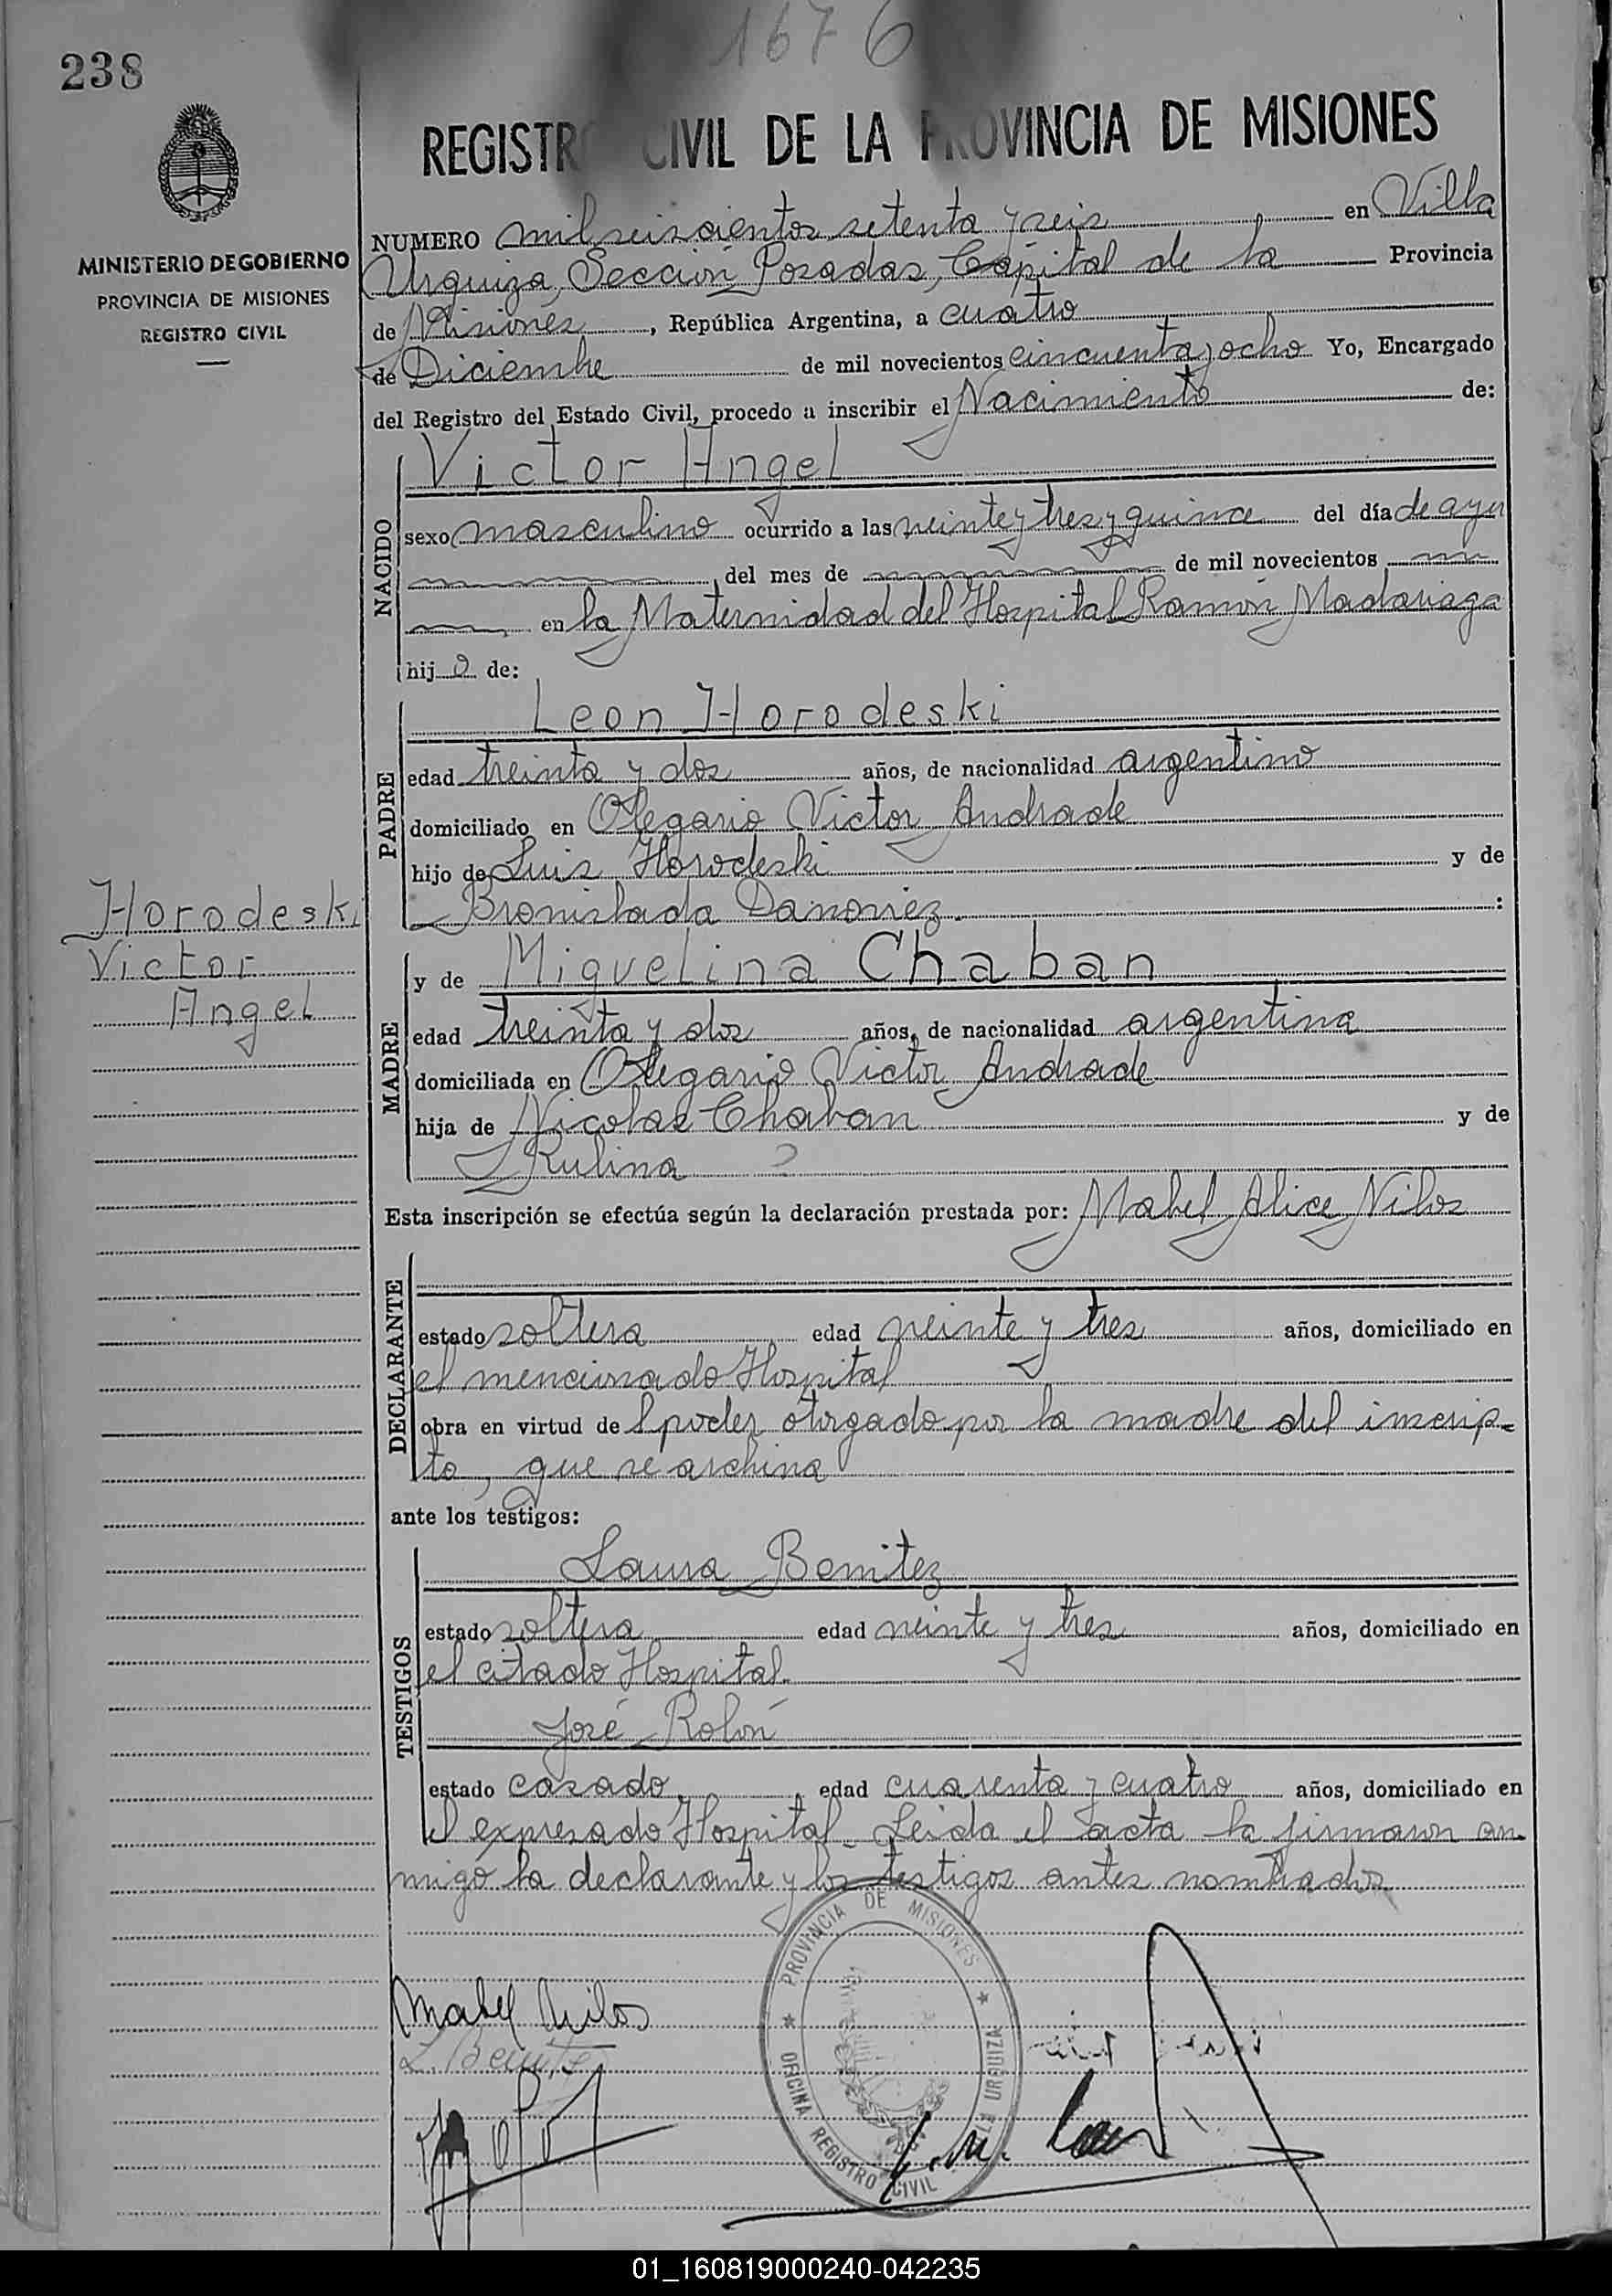 1676
238
REGISTRO CIVIL DE LA PROVINCIA DE MISIONES
MINISTERIO DE GOBIERNO
PROVINCIA DE MISIONES
REGISTRO CIVIL
NUMERO mil seiscientos setenta y seis en Villa
Urquiza, Sección Posadas, Capital de la Provincia
de Misiones, República Argentina, a cuatro
de Diciembre de mil novecientos cincuenta y ocho Yo, Encargado
del Registro del Estado Civil, procedo a inscribir el Nacimiento de:
NACIDO
Victor Angel
sexo masculino ocurrido a las veinte y tres y quince del día de ayer
del mes de de mil novecientos
en la Maternidad del Hospital Ramón Madariaga
hijo de:
PADRE
Leon Horodeski
edad treinta y dos años, de nacionalidad argentino
domiciliado en Olegario Victor Andrade
hijo de Luis Horodeski y de
Bronislada :
Horodeski
Victor
Angel
MADRE
y de Miguelina Chaban
edad treinta y dos años, de nacionalidad argentina
domiciliada en Olegario Victor Andrade
hija de Nicolas Chaban y de
Rulina ?
Esta inscripción se efectúa según la declaración prestada por: Mabel Alice Nilos
DECLARANTE
estado soltera edad veinte y tres años, domiciliado en
el mencionado Hospital
obra en virtud del poder otorgado por la madre del inscrip-
to, que se archiva
ante los testigos:
TESTIGOS
Laura Benitez
estado soltera edad veinte y tres años, domiciliado en
el citado Hospital.
José Rolón
estado casado edad cuarenta y cuatro años, domiciliado en
el expresado Hospital. Leida el acta la firmaron con-
migo la declarante y los testigos antes nombrados
PROVINCIA DE MISIONES
OFICINA REGISTRO CIVIL URQUIZA
Mabel Nilos
L. Benitez
01_160819000240-042235